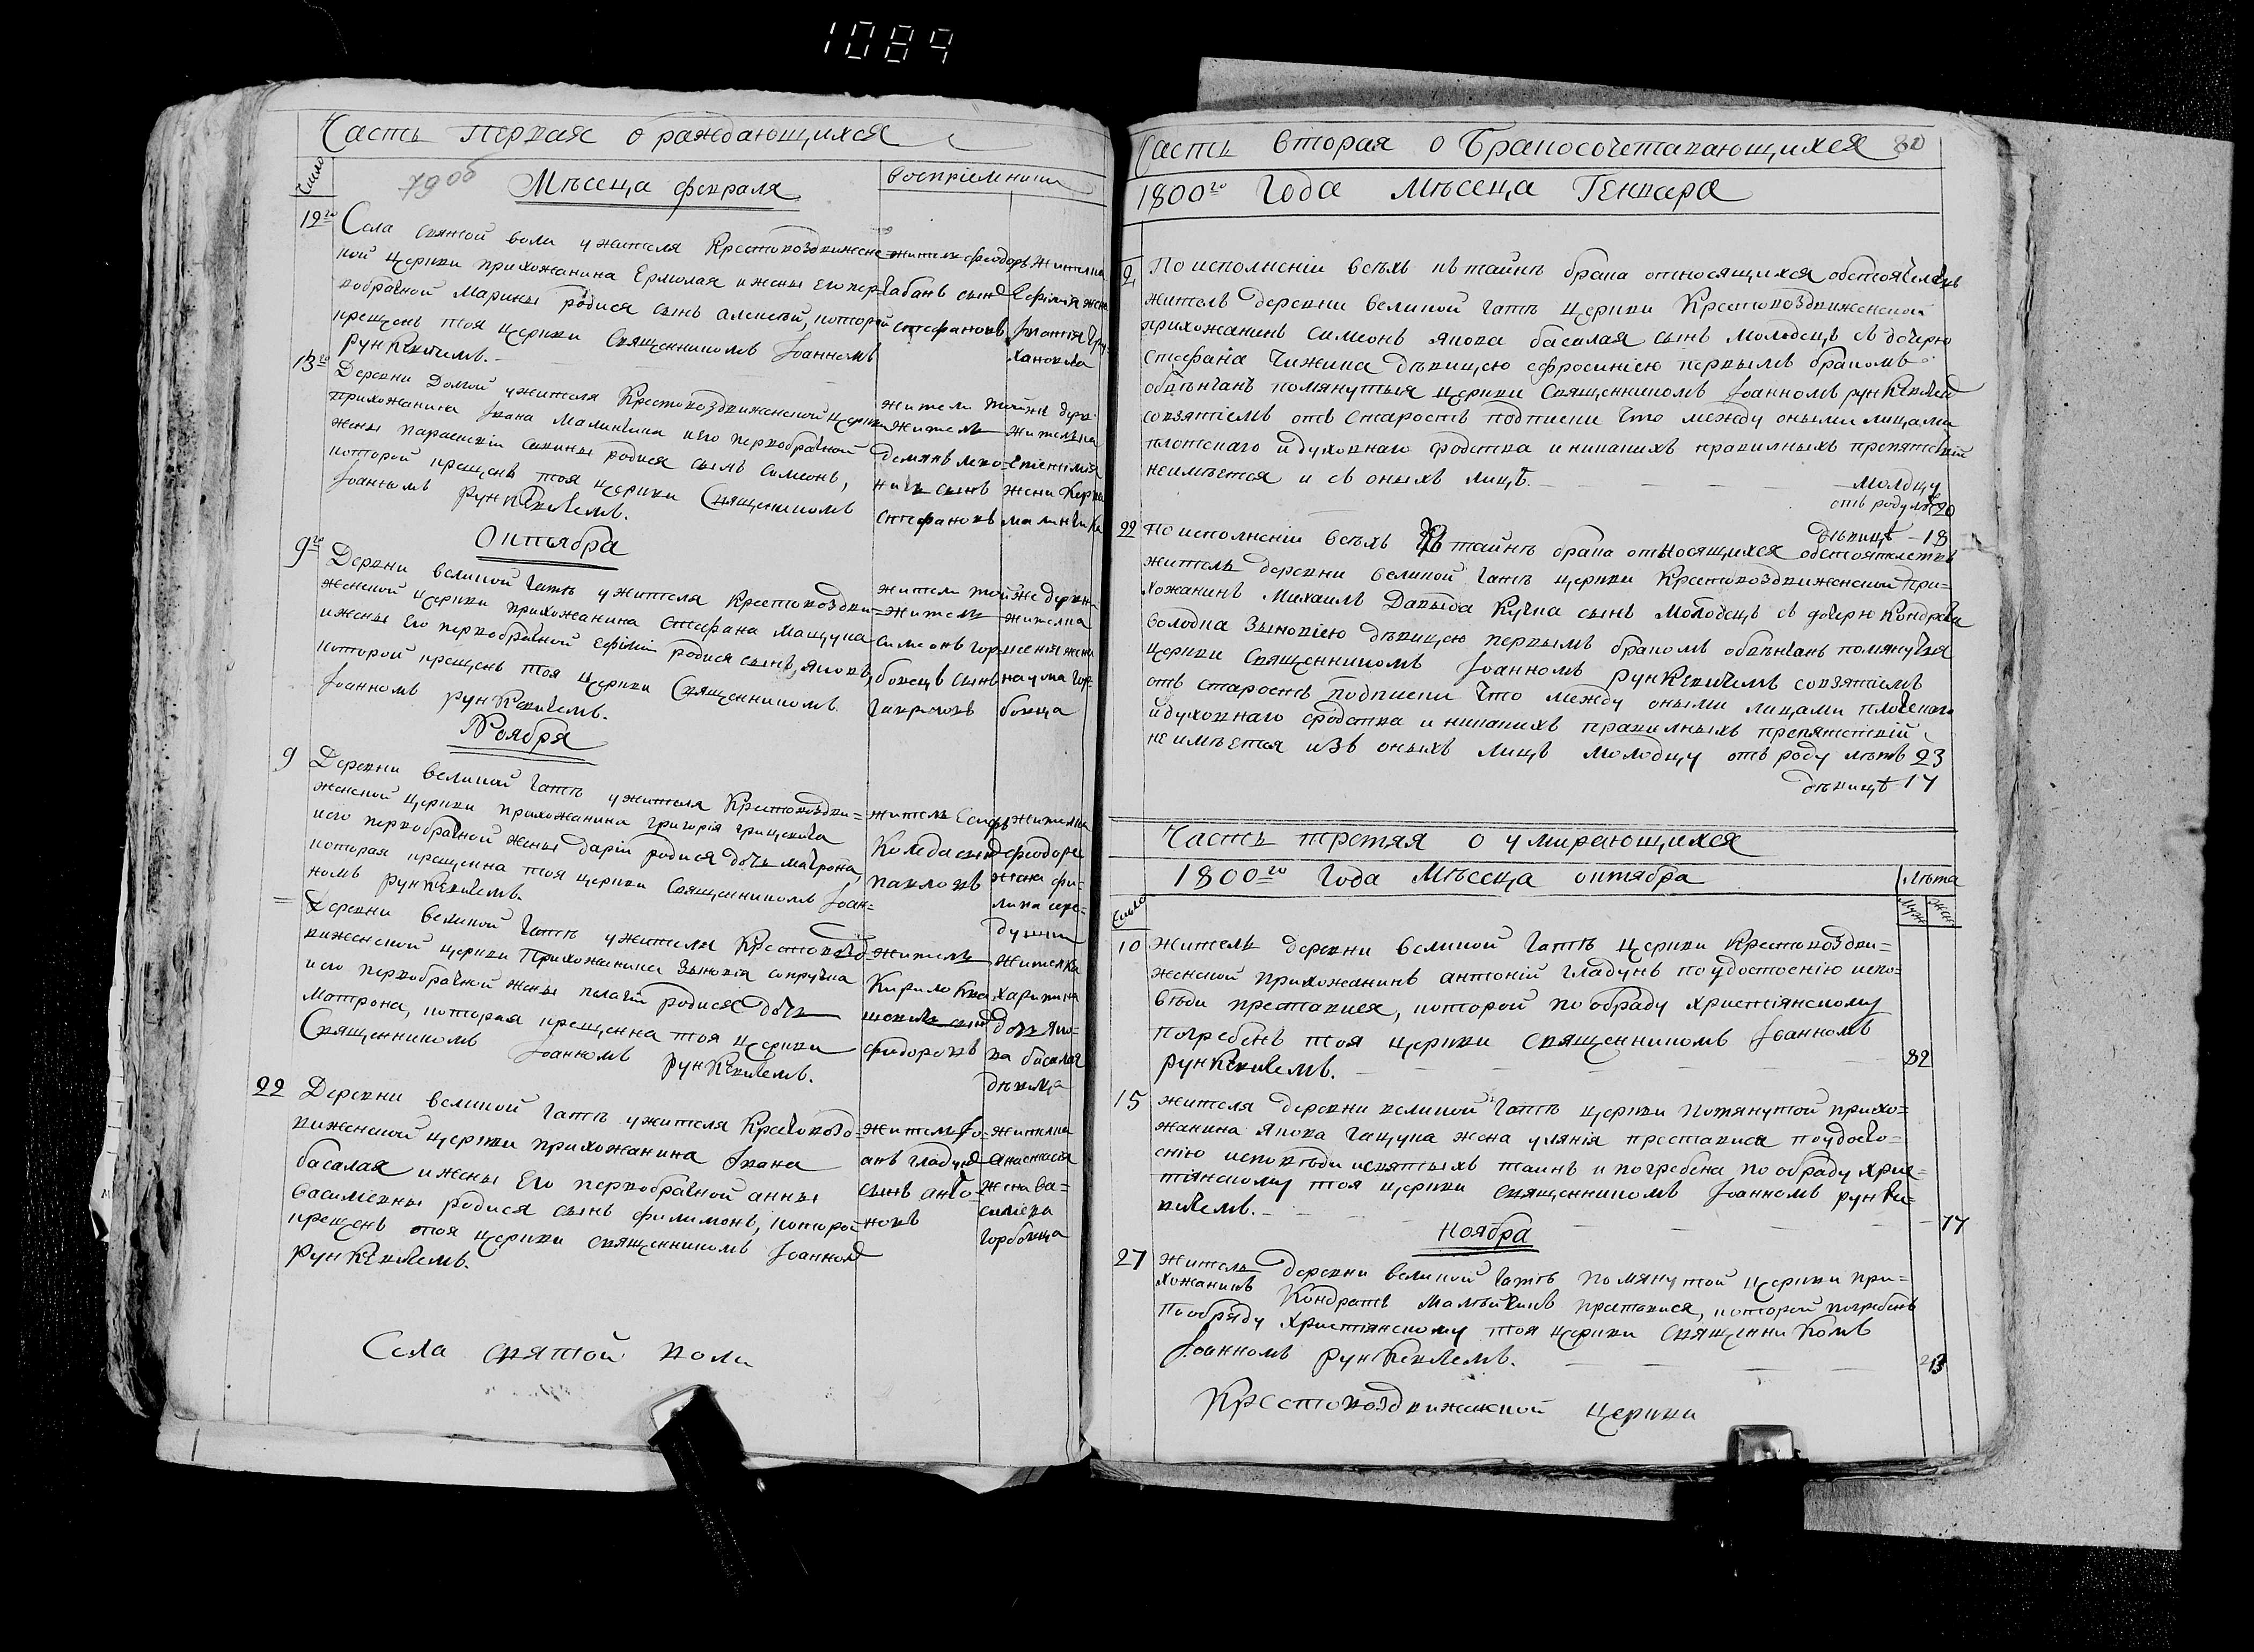 1089
Часть первая о раждающихся
79об
Число
Мѣсяца февраля
воспріемники
12го
Села святой воли у жителя Крестовоздвижен=
ной церкви прихожанина Ермолая и жены его пер=
вобрачной Марины родися сынъ алексѣй, которой
крещенъ тоя церкви Священникомъ Іоанномъ
рункевичемъ.
житель феодоръ
Чабанъ сынъ
стефановъ
жителка
Ефимія жена
хановича
13го
Деревни Долгой у жителя Крестовоздвиженской церкви
прихожанина Ивана Малинчика и его первобрачной
жены параскевіи родися сынъ симеонъ,
которой крещенъ тоя церкви Священникомъ
Іоанномъ рункевичемъ.
жители той же дерв:
житель
сынъ
стефановъ
жителка
жена
Октября
9го
Деревни великой гать у жителя Крестовоздви=
женской церкви прихожанина стефана Мацука
и жены Его первобрачной Ефиміи родися сынъ, яковъ,
которой крещенъ тоя церкви Священникомъ
Іоанномъ рункевичемъ.
жители той же деревни
житель
симеонъ гор=
бовецъ сынъ
гавриловъ
жителка
ксенія жена
наума гор=
бовца
Ноября
9
Деревни великой гать у жителя Крестовоздви=
женской церкви прихожанина григорія грицкевича
и его первобрачной жены даріи родися дочь матрона,
которая крещенна тоя церкви Священникомъ Іоан=
номъ рункевичемъ.
житель Есифъ
Коледа сынъ
павловъ
жителка
феодора
жена фи=
липа сере=
души
=
Деревни великой гать у жителя Крестовоз=
движенской церкви прихожанина Зѣновія
и его первобрачной жены пелагіи родися дочь
Матрона, которая крещенна тоя церкви
Священникомъ Іоанномъ рункевичемъ.
житель
Кирило
сынъ
фидоровъ
жителка
харитина
дочь яко=
ва басалая
дѣвица
22
Деревни великой гать у жителя Крестовозд=
виженской церкви прихожанина Ивана
басалая и жены Его первобрачной анны
василевны родися сынъ филимонъ, которой
крещенъ тоя церкви священникомъ Іоанномъ
рункевичемъ.
житель Іо=
анъ гладунъ
сынъ анто=
новъ
жителка
анастасія
жена ва=
силева
горбовца
Села святой воли
Часть вторая о бракосочетавающихся 80
1800го года мѣсяца Генваря
2
По исполненіи всѣхъ къ тайнѣ брака относящихся обстоятелствъ
житель деревни великой гать церкви Крестовоздвиженской
прихожанинъ симеонъ якова басалая сынъ молодецъ съ дочерю
стефана Чижика дѣвицею ефросиніею первымъ бракомъ
обвѣнчанъ помянутыя церкви Священникомъ Іоанномъ рункевичемъ
совзятіемъ отъ старостъ подписки что между оными лицами
плотскаго и духовнаго сродства и никакихъ правилныхъ препятствій
неимѣется и съ оныхъ лицъ. молодцу
отъ роду лѣтъ 20
дѣвицѣ - 18
22
По исполненіи всѣхъ къ тайнѣ брака относящихся обстоятелствъ
житель деревни великой гать церкви Крестовоздвиженской при=
хожанинъ Михаилъ Давыда Кучка сынъ Молодецъ съ дочерю Кондрата
володка Зѣновіею дѣвицею первымъ бракомъ обвѣнчанъ помянутыя
церкви Священникомъ Іоанномъ рункевичемъ совзятіемъ
отъ старостъ подписки что между оными лицами плотскаго
и духовнаго сродства и никакихъ правилныхъ препятствій
неимѣется изъ оныхъ лицъ молодцу отъ роду лѣтъ 23
дѣвицѣ - 17
Часть третяя о умирающихся
1800го года Мѣсяца октября
Лѣта
Число
Муж
Жен
10
житель деревни великой гать церкви Крестовоздви=
женской прихожанинъ антоній гладунъ по удостоенію испо=
вѣди преставися, которой по обряду христіянскому
погребенъ тоя церкви священникомъ Іоанномъ
рункевичемъ.
82
15
жителя деревни великой гать церкви помянутой прихо=
жанина якова гацука жена улянія преставися по удосто=
енію исповѣди и святыхъ таинъ и погребена по обряду хрис=
тіянскому тоя церкви священникомъ Іоанномъ рунке=
вичемъ.
77
Ноября
27
житель деревни великой гать помянутой церкви при=
хожанинъ Кондратъ преставися, которой погребенъ
по обряду христіянскому тоя церкви священникомъ
Іоанномъ рункевичемъ.
Крестовоздвиженской церкви